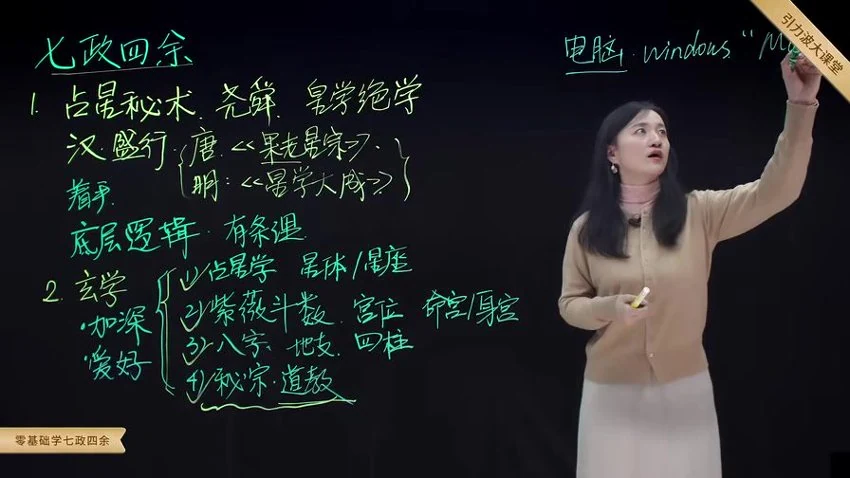 七政四余
1. 占星秘术. 尧舜. 星学绝学
汉. 盛行. 唐. <<果老星宗>>.
明: <<星学大成>>
着手.
底层逻辑. 有条理.
2. 玄学
·加深
·爱好
1) 占星学 星体/星座
2) 紫薇斗数. 宫位 命宫/身宫
3) 八字 地支. 四柱
4) 秘宗·道教
电脑. windows. "M
引力波大课堂
零基础学七政四余